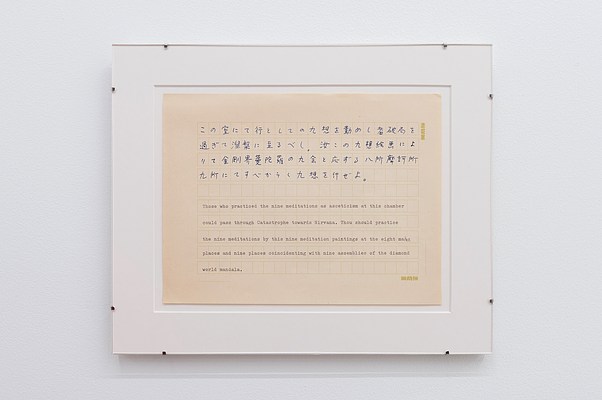 この室にて行としての九想を勤めし者破局を
過ぎて涅槃に至るべし。汝この九想絵黒によ
りて金剛界曼陀羅の九会と応する八所摩訶所
九所にてすべからく九想を行ぜよ。
Those who practiced the nine meditations as asceticism at this chamber
could pass through Catastrophe towards Nirvana. Thou should practice
the nine meditations by this nine meditation paintings at the eight main
places and nine places coinciding with nine assemblies of the diamond
world mandala.